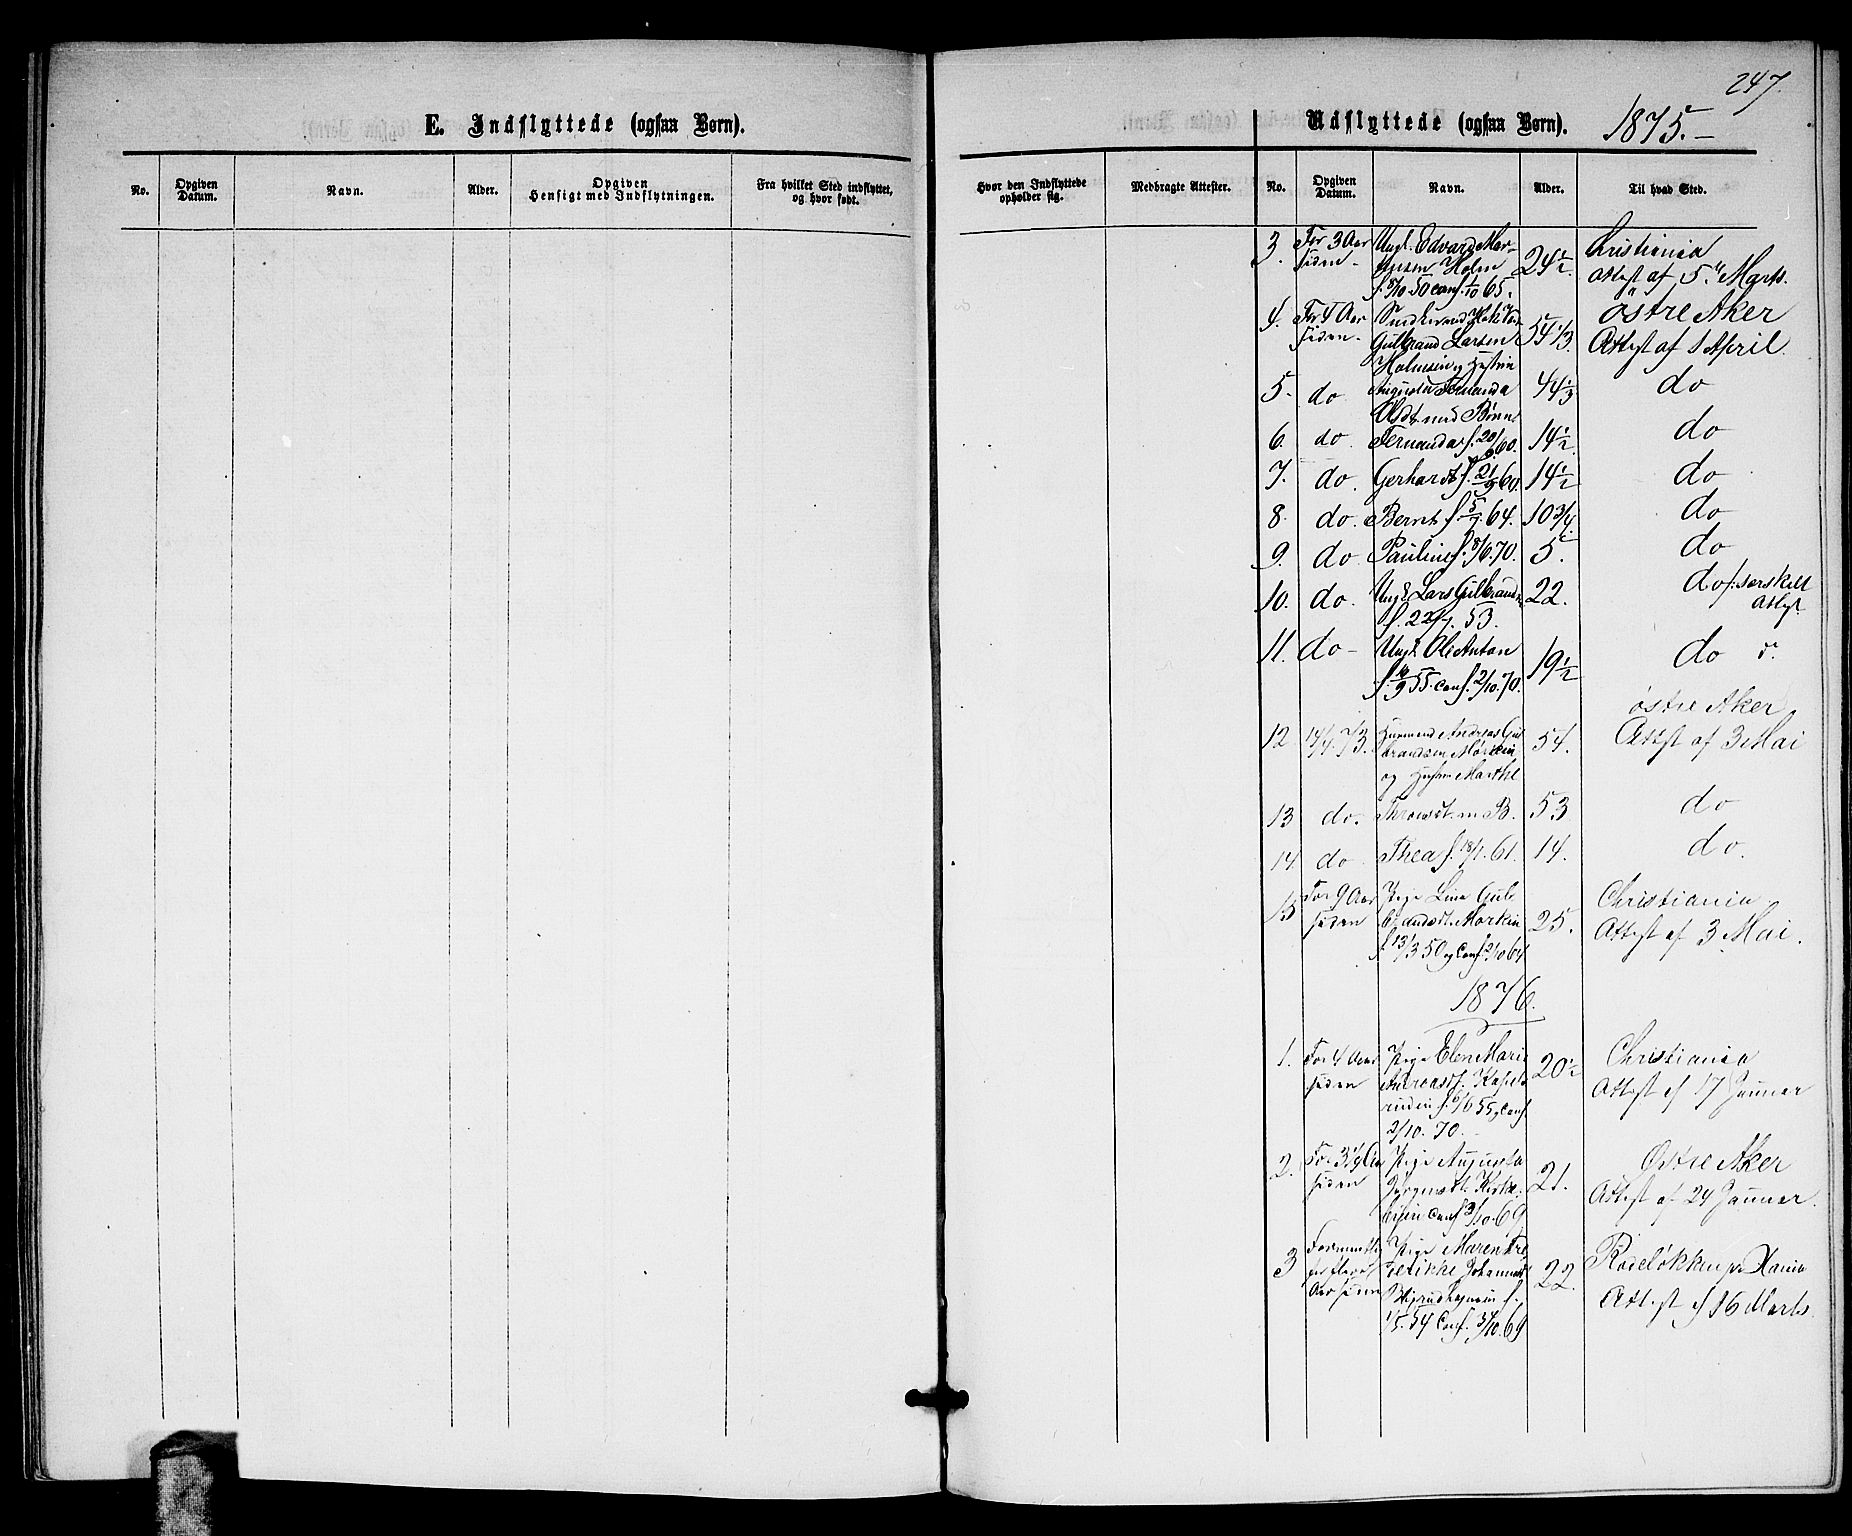 247.
E. Indflyttede (ogsaa Børn).
Udflyttede (ogsaa Børn). 1875.–
No. Opgiven Datum. Navn. Alder. Opgiven Hensigt med Indflytningen. Fra hvilket Sted indflyttet, og hvor født.
Hvor den Indflyttede opholder sig. Medbragte Attester. No. Opgiven Datum. Navn. Alder. Til hvad Sted.
3. For 3 Aar Ungk. Edvard Christiania
siden – Holm 24½. Attest af 5. Marts.
50 conf. 1/10 65.
4. For 4 Aar østre Aker
siden – Gulbrand Larsen 54 1/3. Attest af 1 April.
Holmsin og Hustru
5. do Augusta Fernanda 44 1/3 do
med Børn
6. do Fernanda f. 60. 14½. do
7. do. Gerhardt f. 21/9 60. 14½ do
8. do. Bernt f. 64. 10¾. do
9. do Pauline f. 8/6. 70. 5. do
10. do. Ungk. Lars Gulbrands 22. do særskilt
f. 22/7. 53. Attest.
11. do – Ungk. Ole Anton do
f. 55. conf. 2/10. 70. 19½
østre Aker
12 14/4 Andreas Gul 54. Attest af 3 Mai
brandsen Mørkin
og Hustru Marthe
13 do. m B. 53 do
14. do Thea f. 18/1. 61. 14. do.
15 For 9 Aar Pige Lina Gul Christiania
siden brandsdt. Mørkin 25. Attest af 3 Mai.
f. 13/3 50 og Conf. 2/10 64
1876.
1. For 4 Aar Pige Elen Marie Christiania
siden Andreasdt. 20½ Attest af 17 Januar
f. 6/6 55 og Conf
2/10. 70.
2. For 3¼ Aar Pige Augusta Østre Aker
siden Jørgensdt. 21. Attest af 24 Januar.
Conf 3/10. 69
3 Formentlig Pige Maren Fre Rodeløkken pr Xania
for flere derikke Johannesd 22.
Aar siden f. Attest af 16 Marts.
1/5. 54 Conf. 3/10. 69